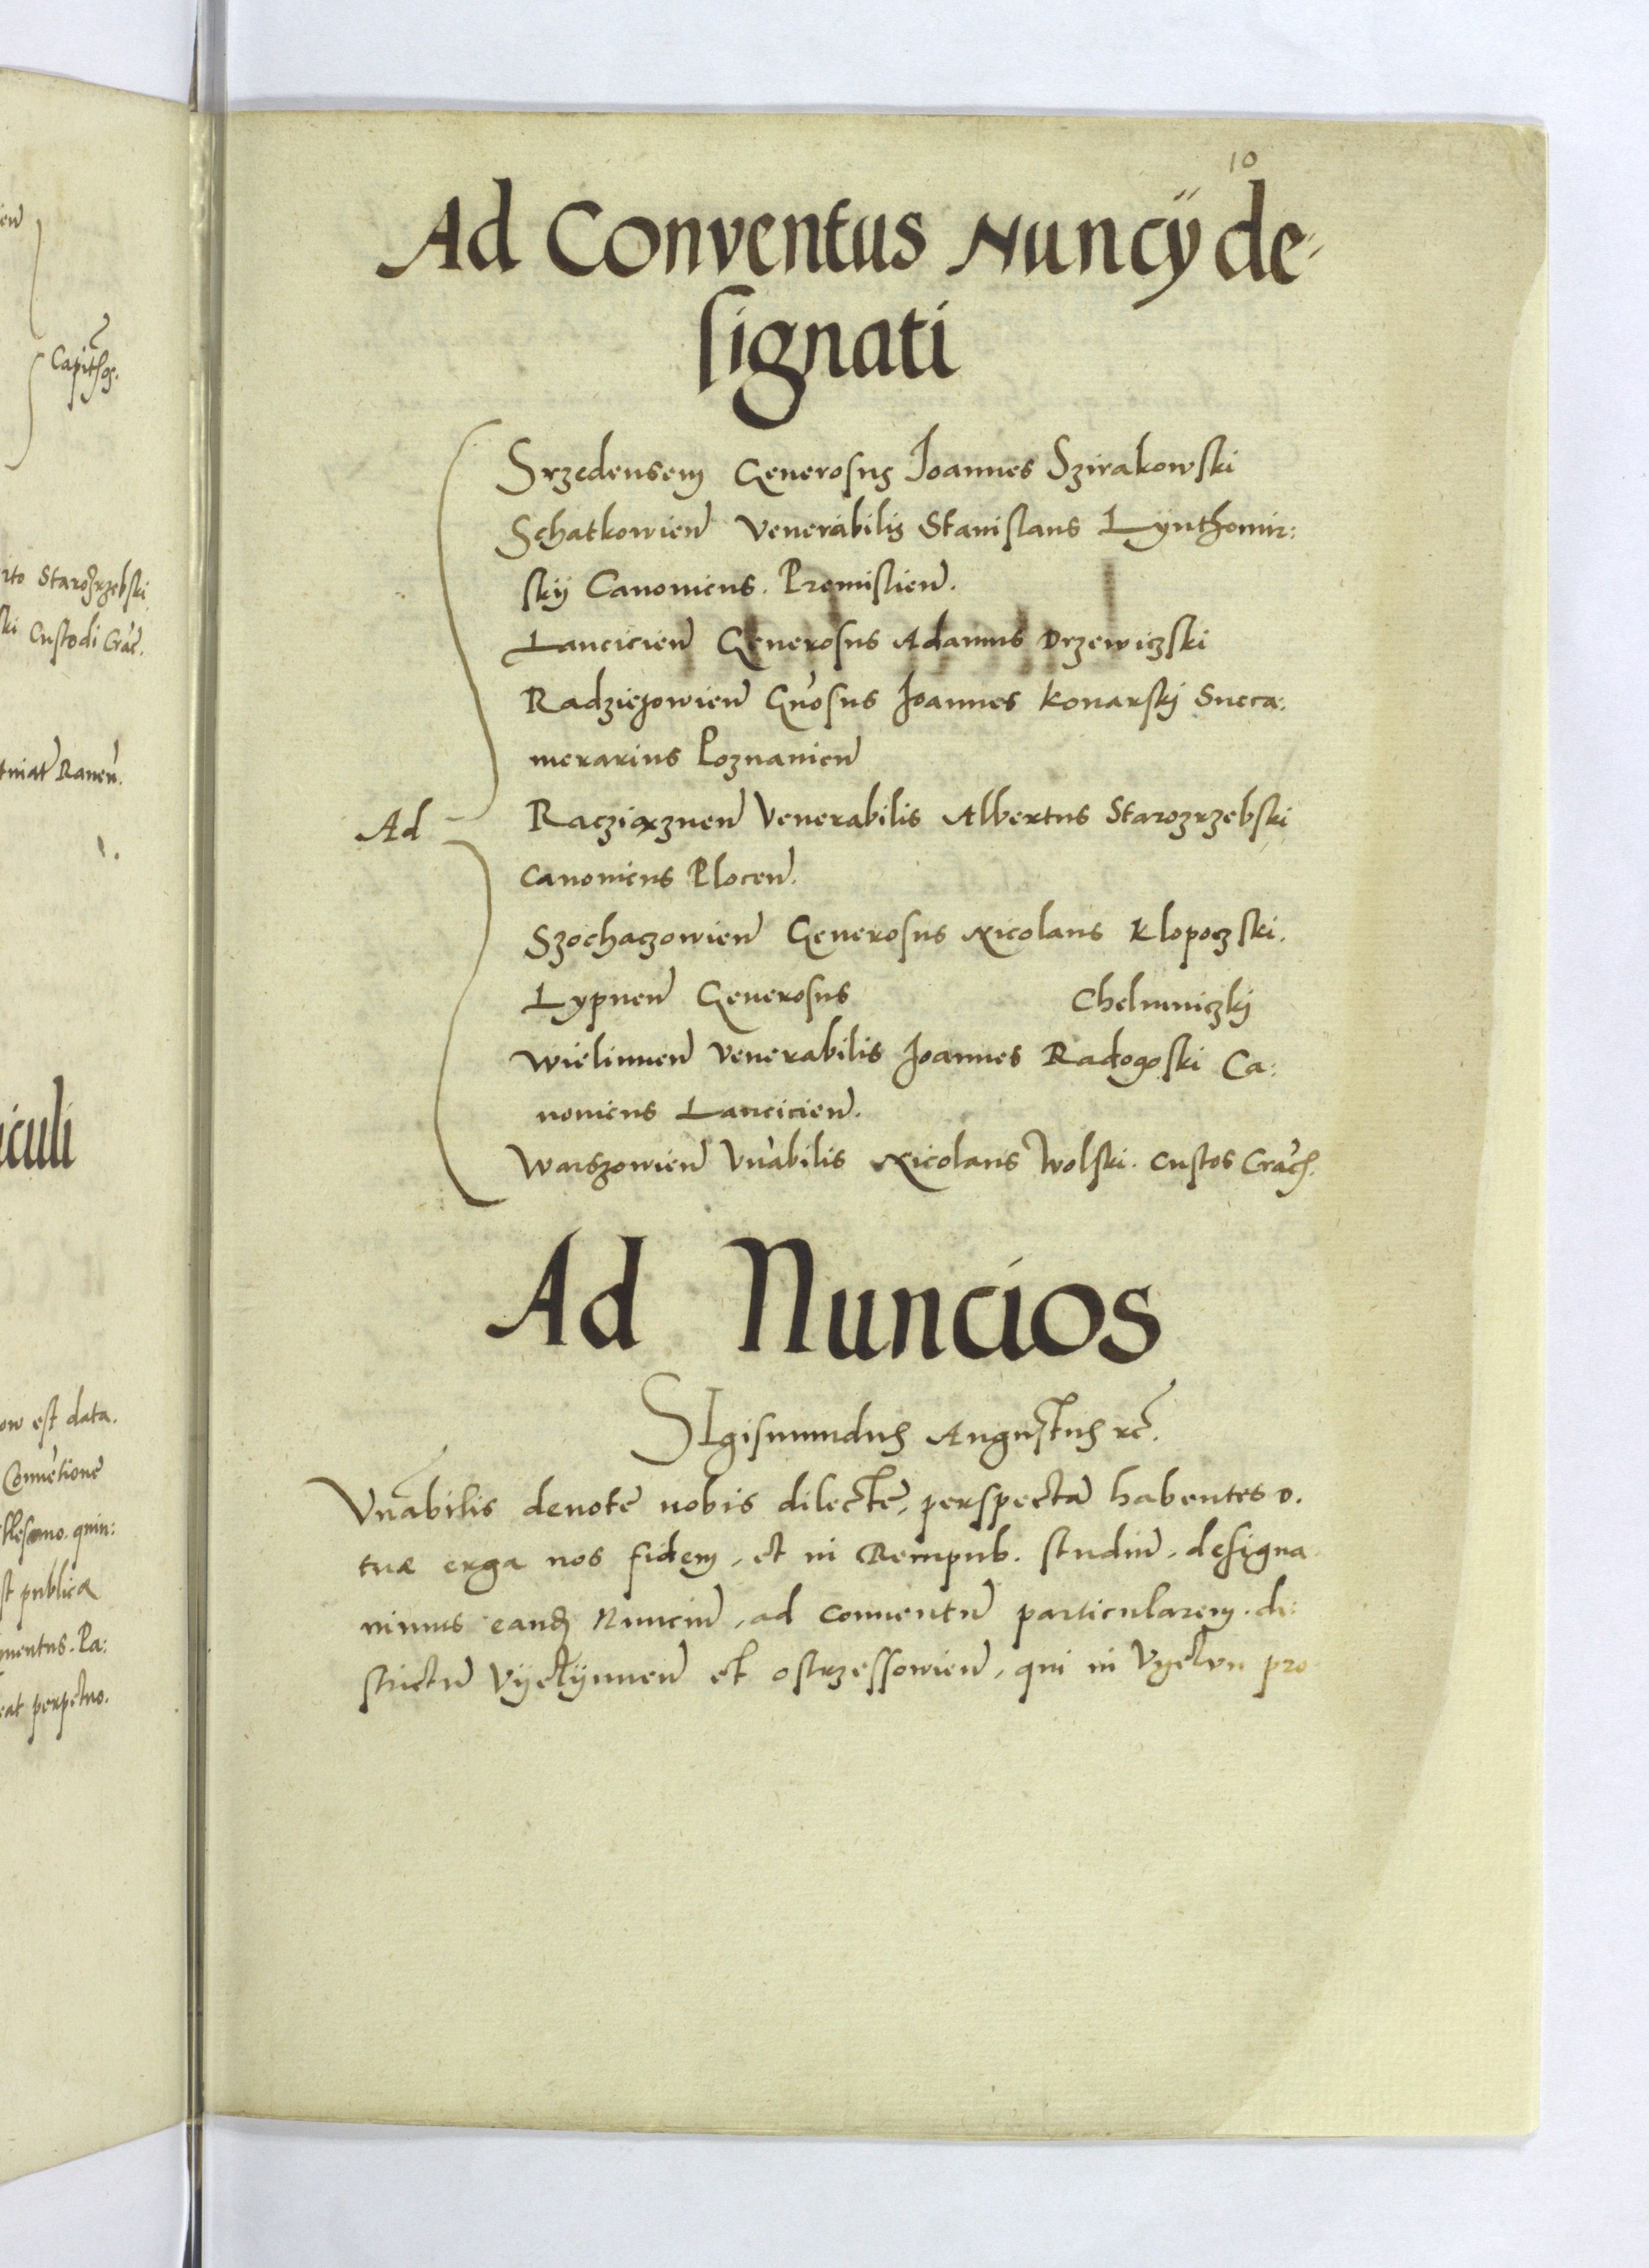 en̄
Capitħs.
rto Starozrzebski
ski Custodi Crac̄.
tniat̄ Raven̄.
iculi
ow est data.
Conuētione
quin:
st publica
mentus. Pa:
eat perpetuo.
10
Ad Conventus Nuncÿ de-
signati
Srzedensem Generosus Joannes Szirakowski
Schatkowien̄ Venerabilis Stanislaus Lÿnthomir:
skÿ Canonicus. Premislien̄.
Lancicien̄ Generosus Adamus Drzewiczski
Radziejowien̄ Gn̄osus Joannes Konarskj Succa:
merarius Poznanien̄
Ad
Racziąxznen̄ Venerabilis Albertus Starozrzebski
Canonicus Plocen̄.
Szochaczowien̄ Generosus Nicolaus Klopoczski.
Lypnen̄ Generosus Chelmniczkj
Wielunnen̄ Venerabilis Joannes Radogoski Ca:
nonicus Lancicien̄.
Warszowien̄ Vn̄abilis Nicolaus Wolski. Custos Crac̄h.
Ad Nuncios
SIgismundus Augustus rc̄.
Vn̄abilis deuote nobis dilecte, perspectā habentes D.
tuæ erga nos fidem, et in Rempub. studiū, designa
uimus eand̄ Nunciū, ad Conuentū particularem. di:
strictū Vÿelÿnnen̄ et ostrzessowien̄, qui in Vyelvn pro